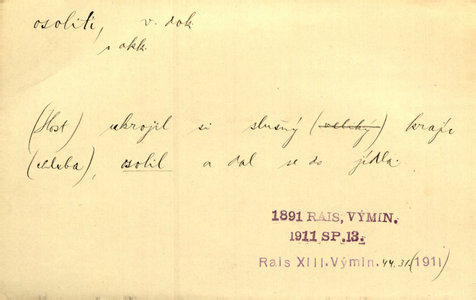 osoliti, v. dok
s akk.
(Host) ukrojil si slušný (veliký) krajíc
(chleba), osolil a dal se do jídla.
1891 RAIS, VÝMIN.
1911 SP. 13.
Rais XIII. Výmin. 44.31 (1911)